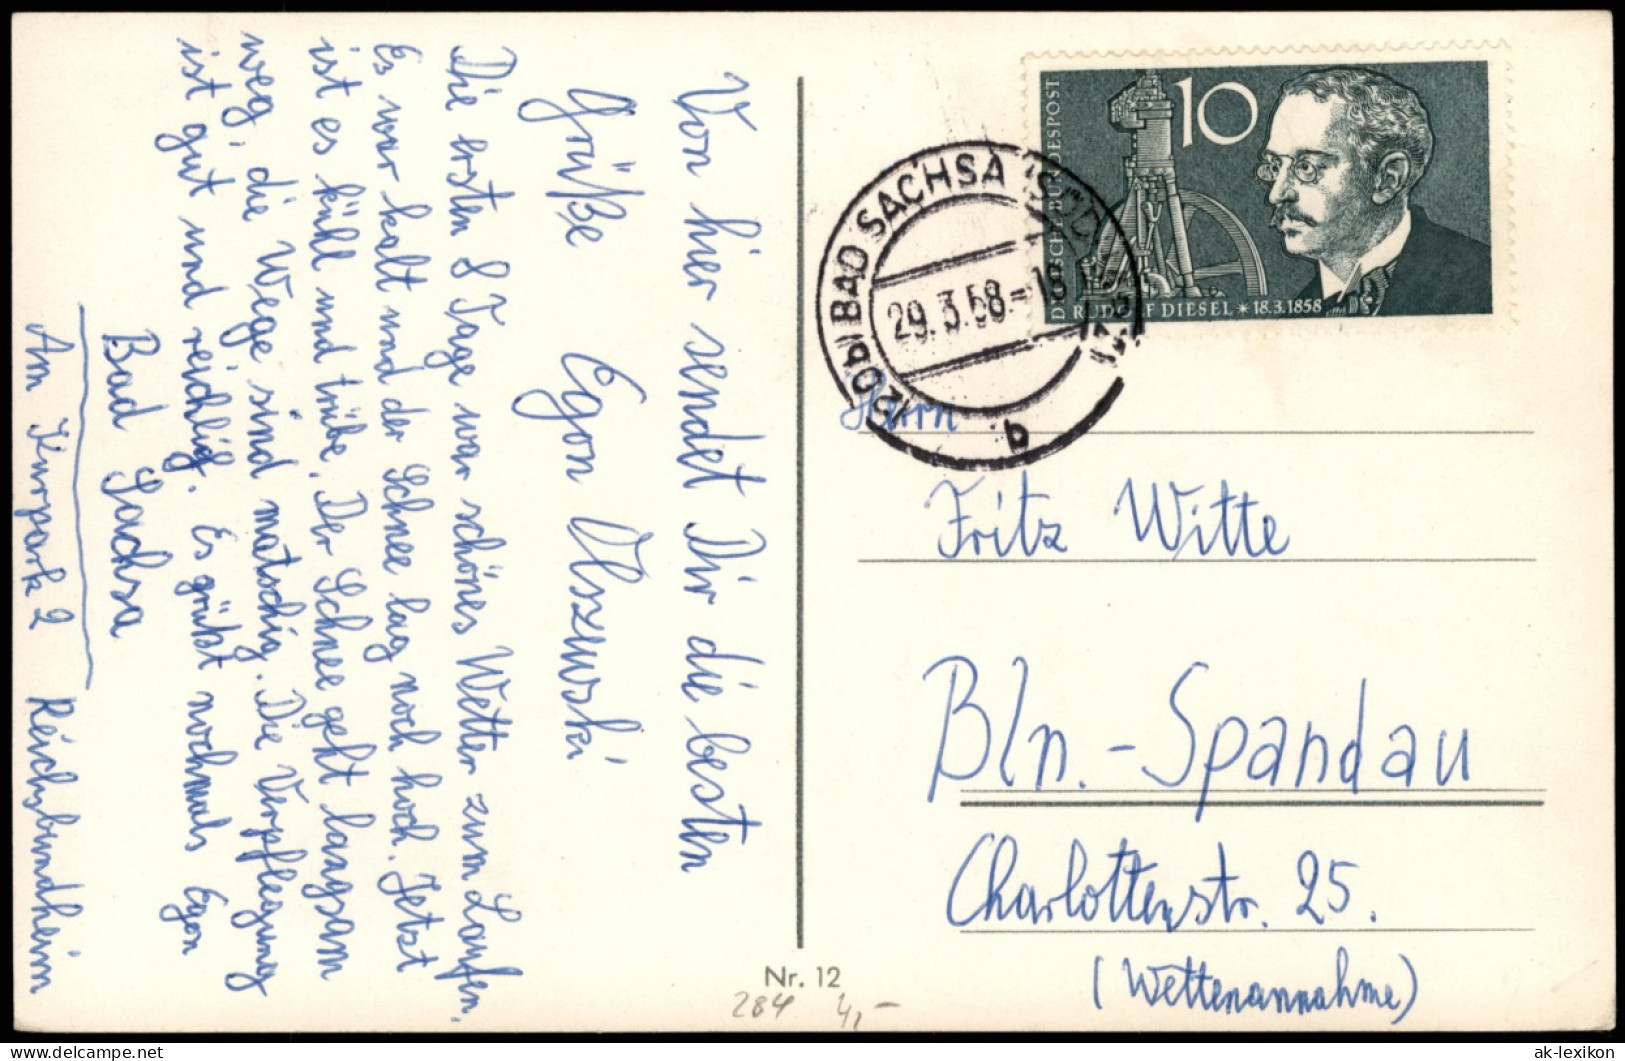 Von hier sendet Dir die besten
Grüße Egon Olszewski
Die ersten 8 Tage war schönes Wetter zum Laufen.
Es war kalt und der Schnee lag noch hoch. Jetzt
ist es kühl und trübe. Der Schnee geht langsam
weg, die Wege sind matschig. Die Verpflegung
ist gut und reichlig. Es grüßt nochmals Egon
Bad Sachsa
Am Kurpark 2 Reichsbundheim
DEUTSCHE BUNDESPOST
10
RUDOLF DIESEL * 18.3.1858
(20b) BAD SACHSA (SÜDHARZ)
29.3.58.-18
b
Herrn
Fritz Witte
Bln.-Spandau
Charlottenstr. 25.
(Wettenannahme)
Nr. 12
284 4,-
ak-lexikon